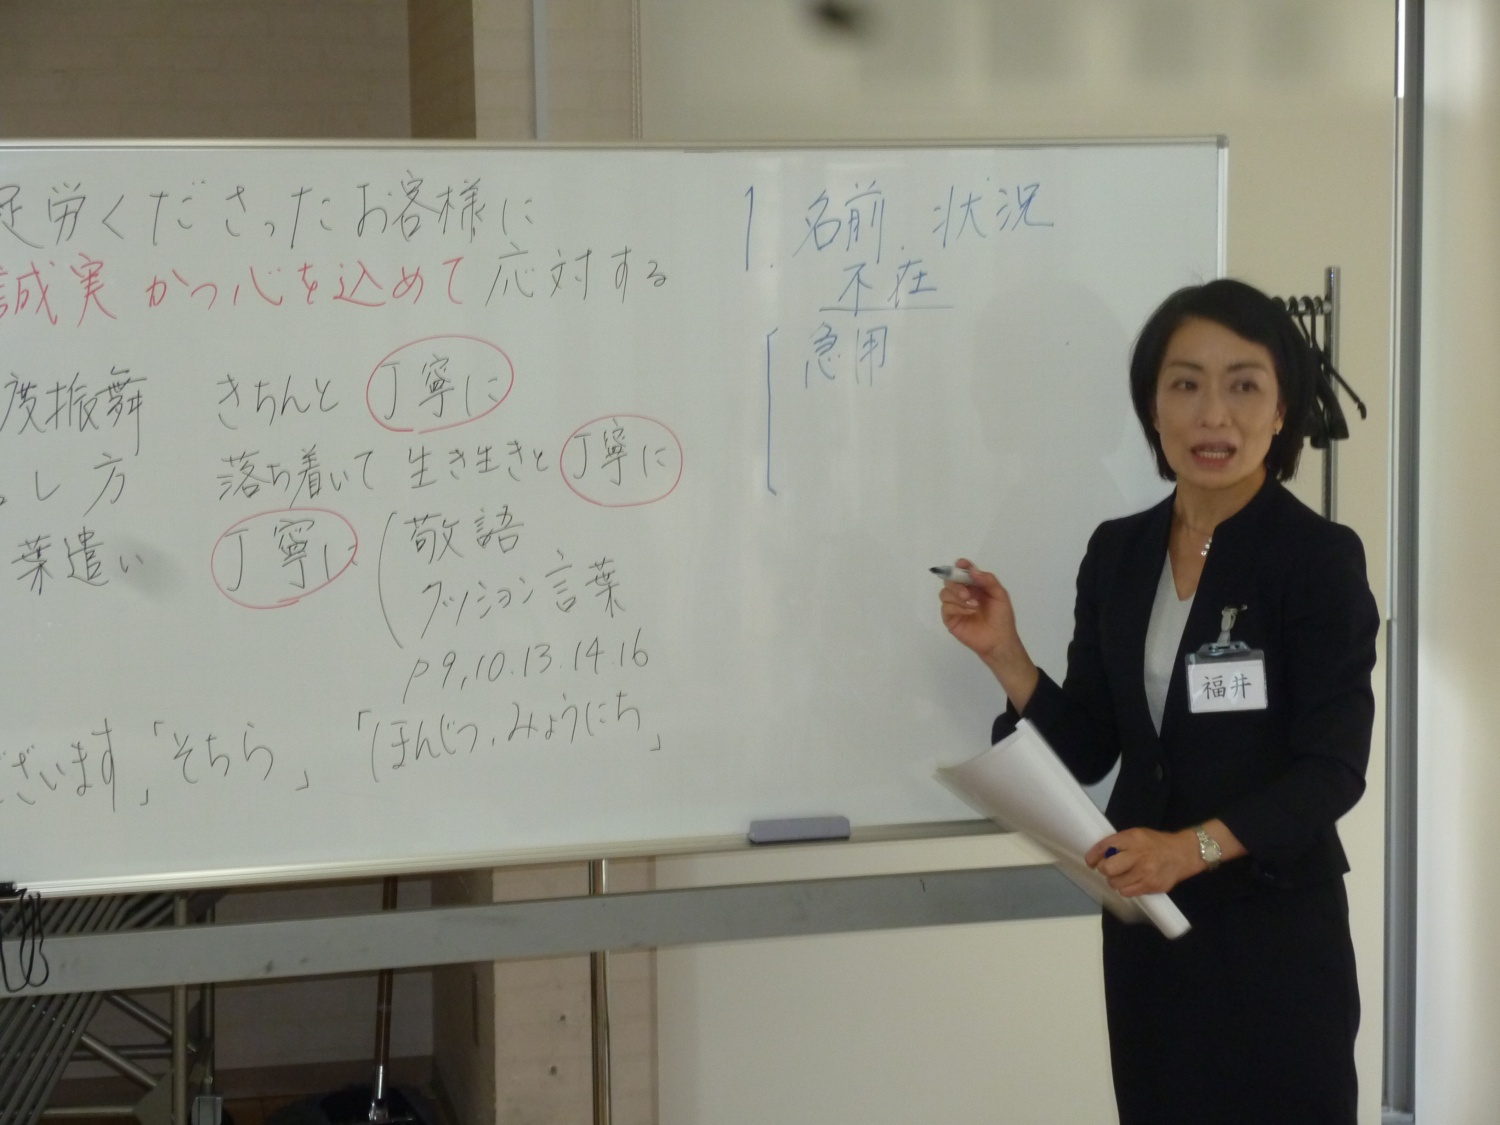 足労くださったお客様に
誠実かつ心を込めて応対する
度振舞 きちんと 丁寧に
し方 落ち着いて 生き生きと 丁寧に
葉遣い 丁寧に 敬語
クッション言葉
P9,10.13.14.16
ございます」「そちら」「ほんじつ、みょうにち」
1. 名前、状況
不在
急用
福井